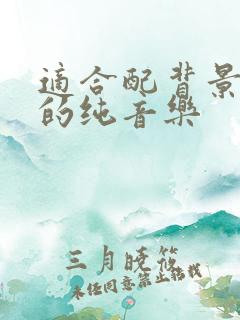 適合配背景
的纯音乐
三月晓筱
未经同意禁止转载